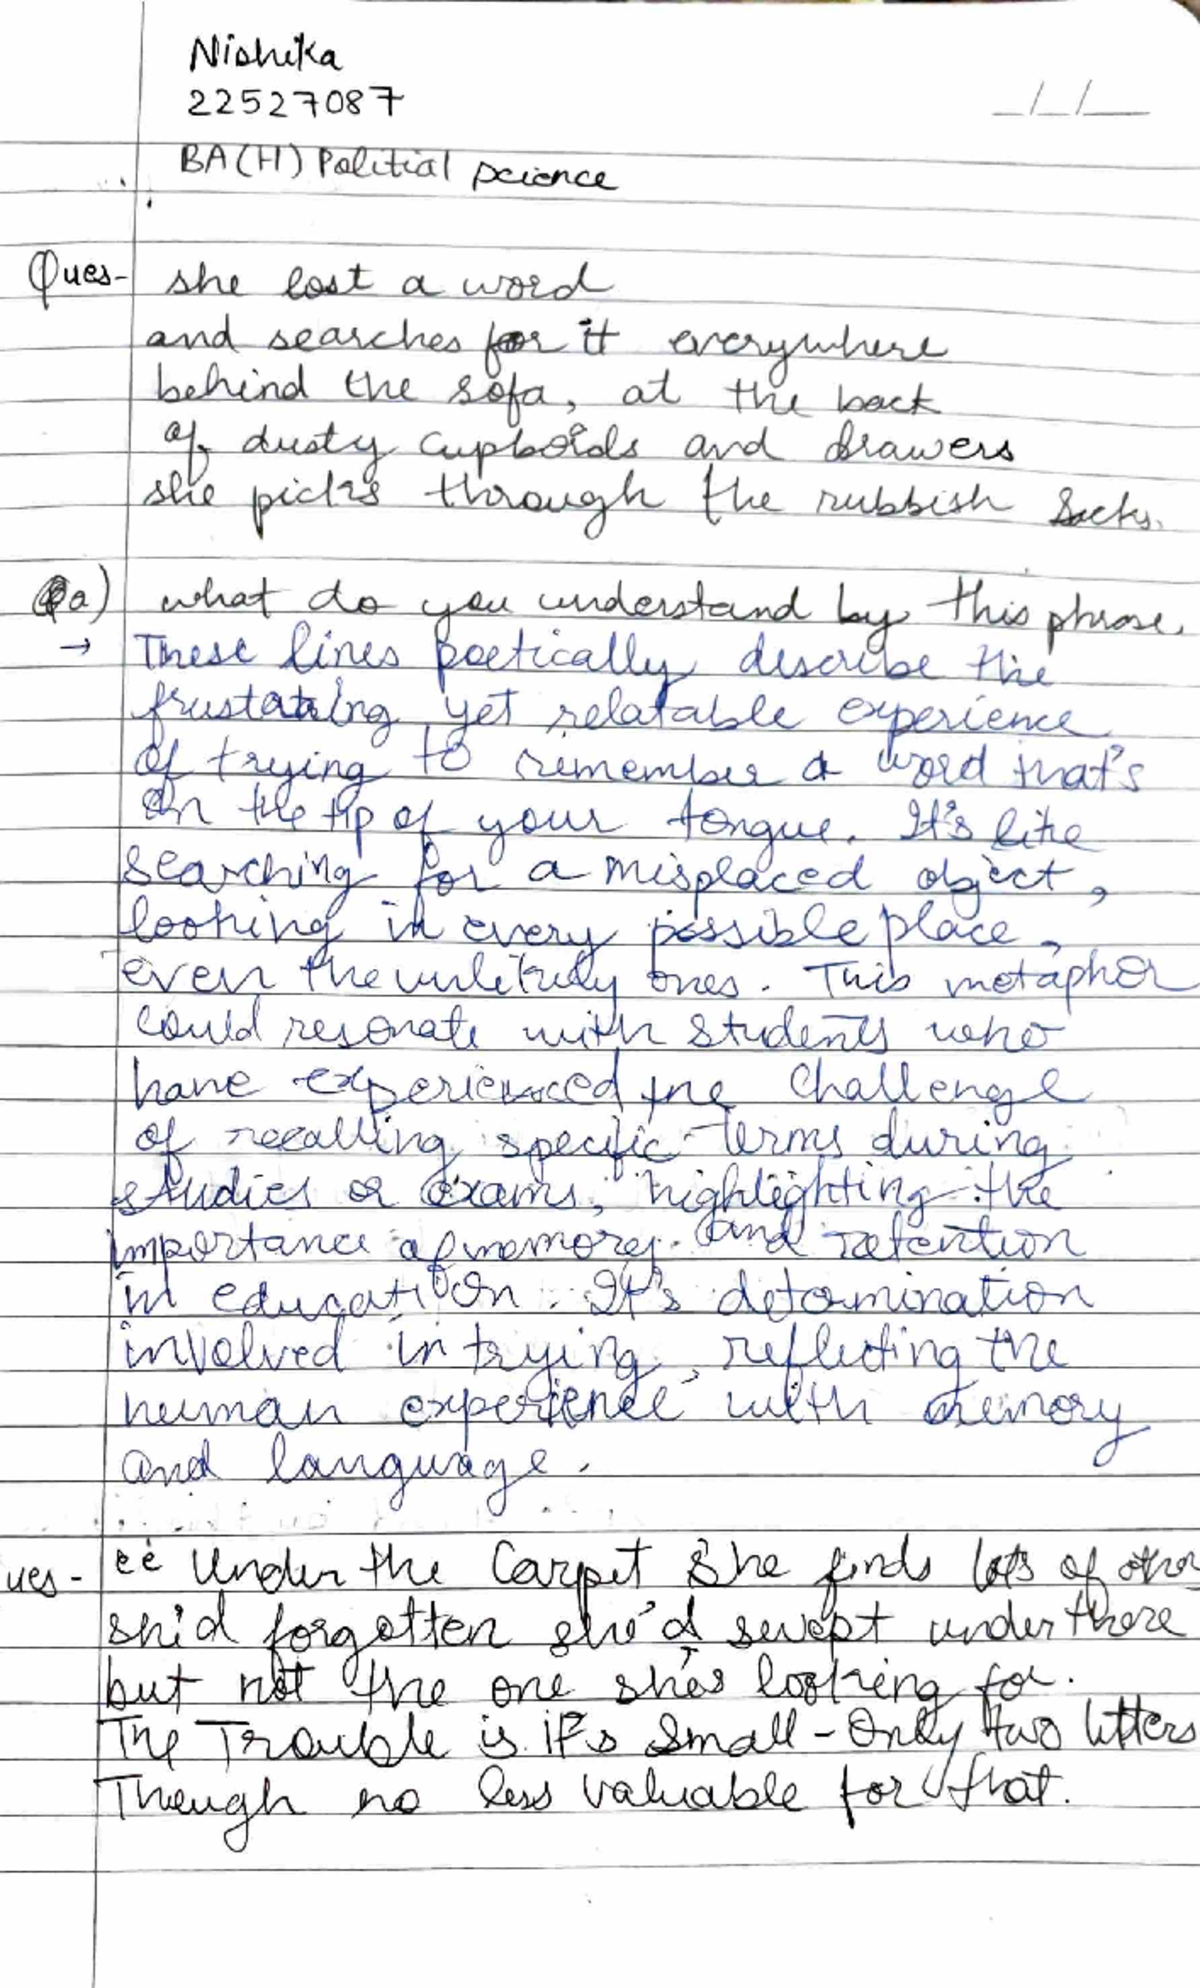 Nishika
22527087
_/_/__
BA(H) Political science
Ques- she lost a word
and searches for it everywhere
behind the sofa, at the back
of dusty cupboards and drawers
she picks through the rubbish sacks.
a) what do you understand by this phrase.
→ These lines poetically describe the
frustating yet relatable experience
of trying to remember a word that's
on the tip of your tongue. It's like
searching for a misplaced object,
looking in every possible place,
even the unlikely ones. This metaphor
could resonate with students who
have experienced the challenge
of recalling specific terms during
studies or exams, highlighting the
importance of memory and retention
in education. It's determination
involved in trying, reflecting the
human experience with memory
and language.
ues- "Under the Carpet She finds lots of other
she'd forgotten she'd swept under there
but not the one she's looking for.
The Trouble is it's Small - Only two letters
Though no less valuable for that.